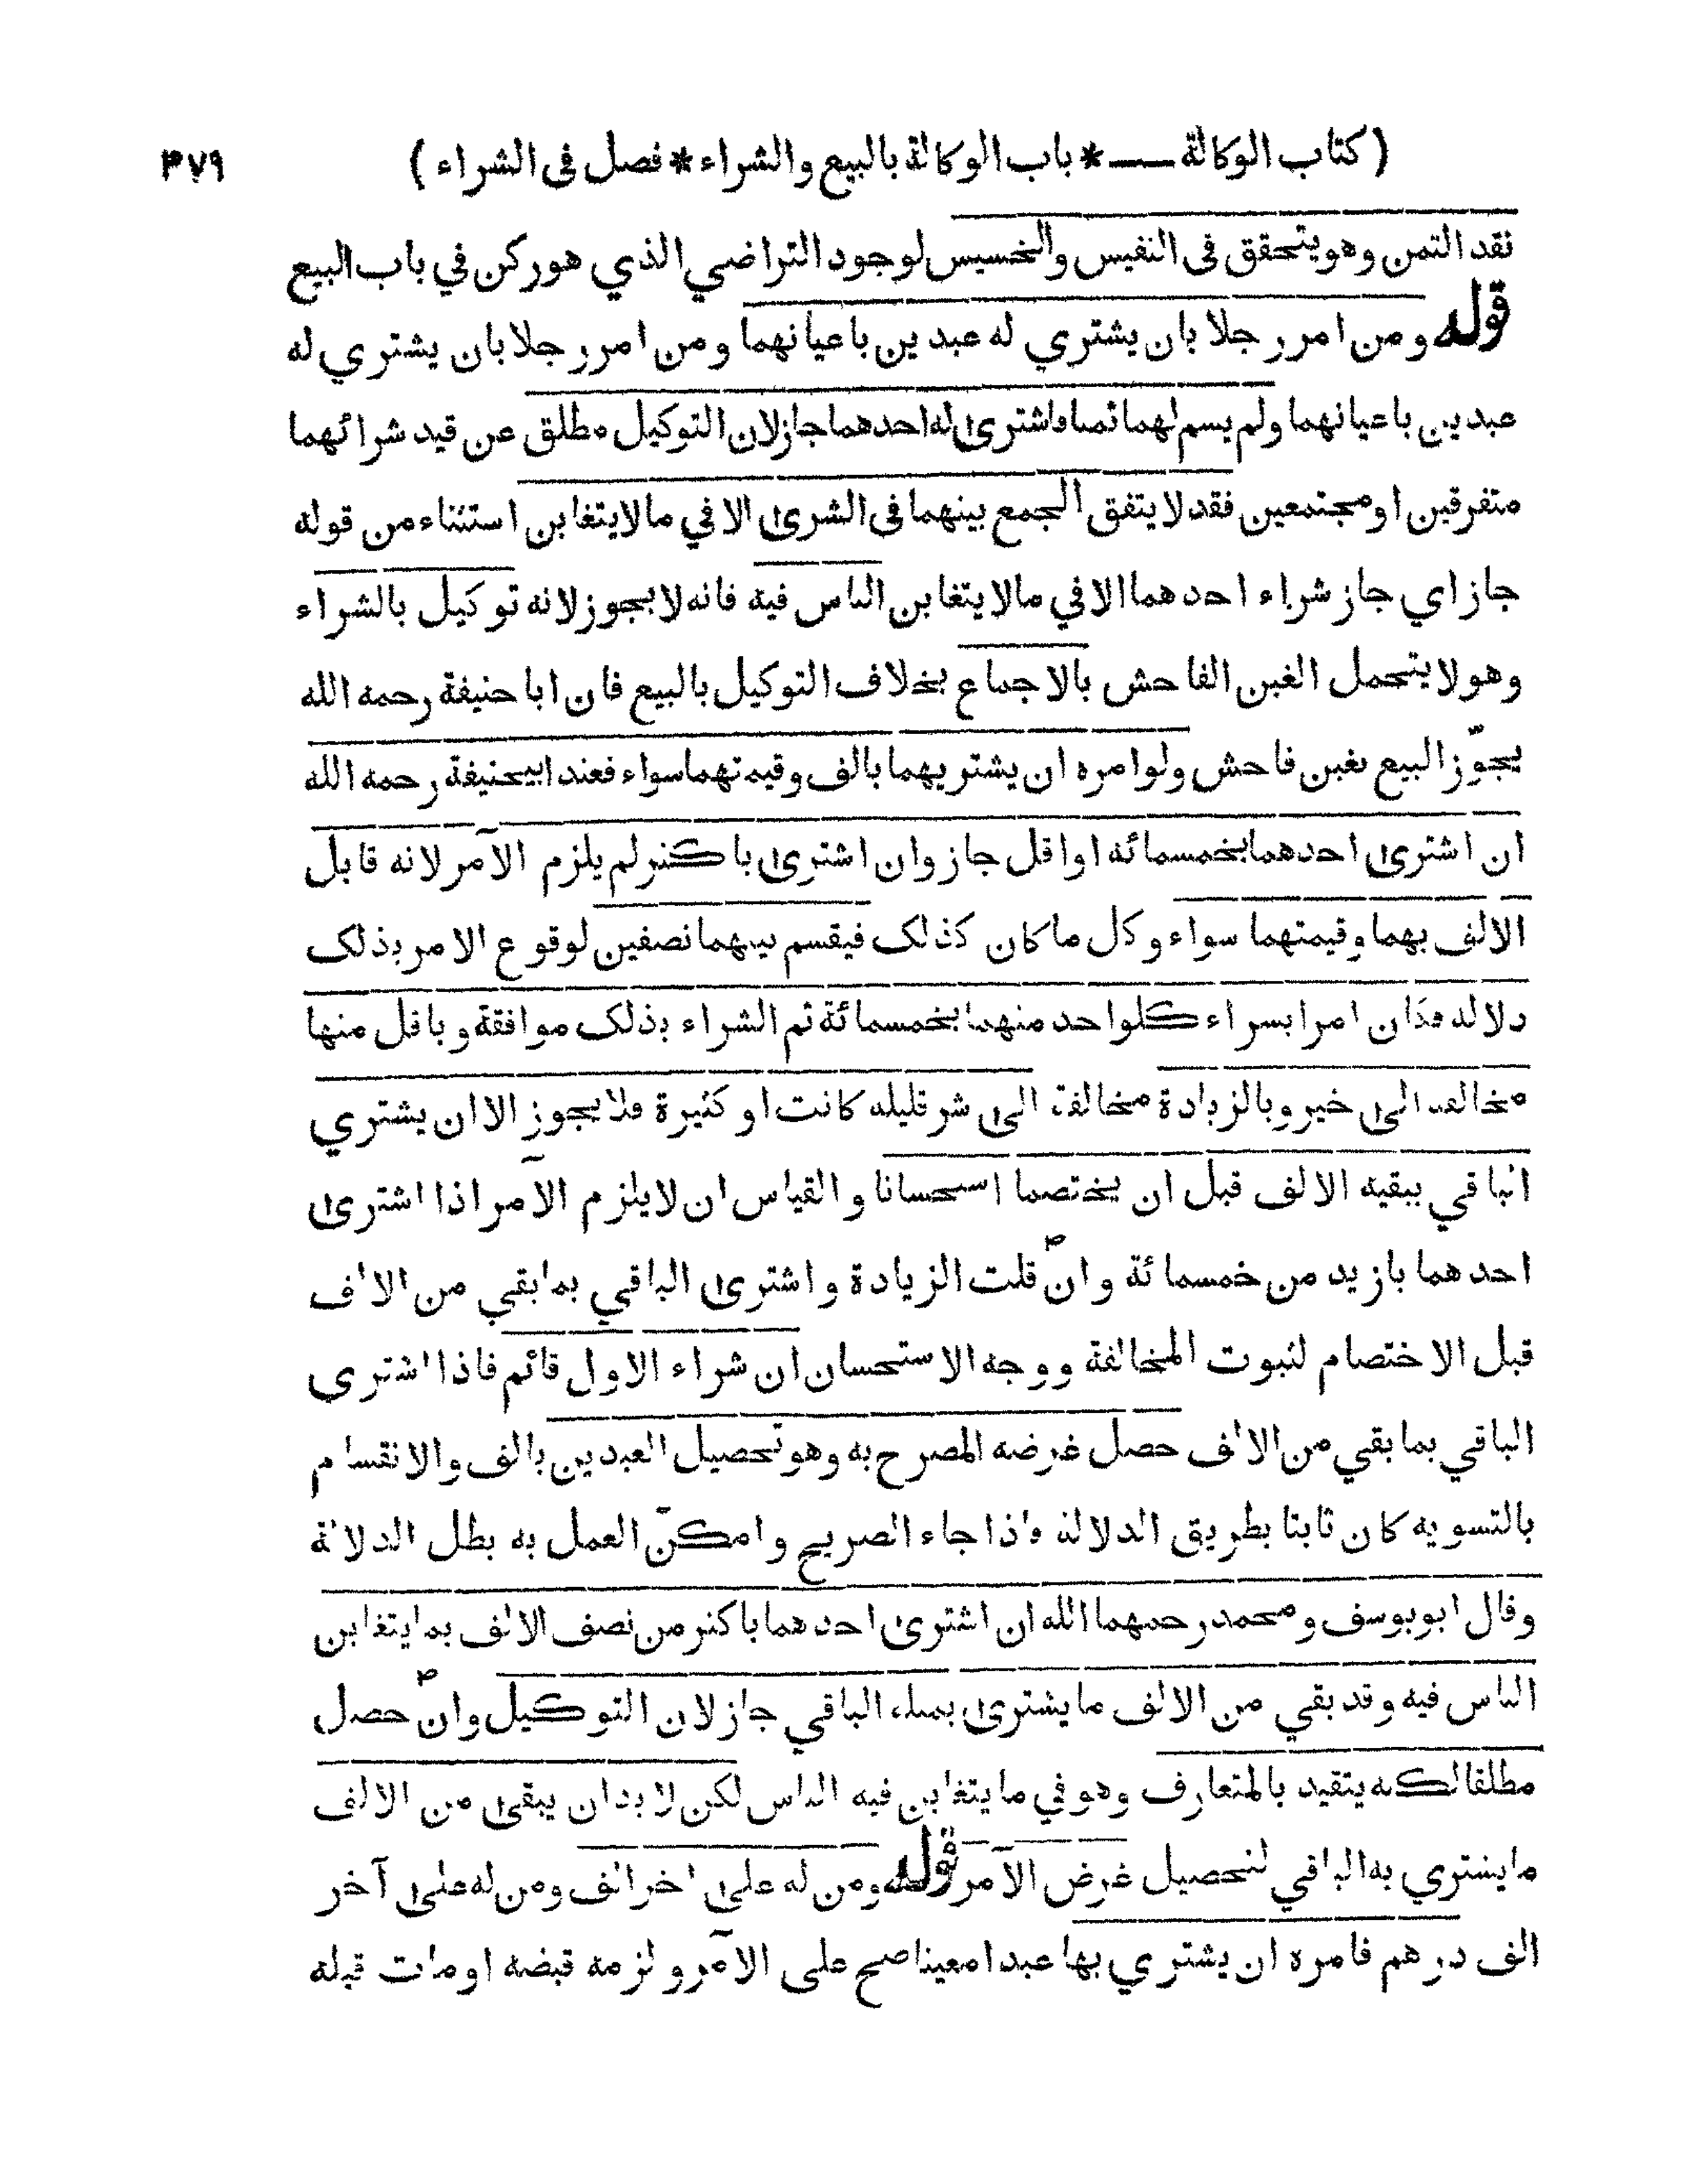 ( كتاب الوكالة ـــ * باب الوكالة بالبيع والشراء * فصل فى الشراء ) ۴۷۹
نقد الثمن وهو يتحقق فى النفيس والخسيس لوجود التراضي الذي هو ركن في باب البيع
قوله ومن امر رجلا بان يشتري له عبدين باعيانهما ومن امر رجلا بان يشتري له
عبدين باعيانهما ولم يسم لهما ثمنا فاشترى له احدهما جاز لان التوكيل مطلق عن قيد شرائهما
متفرقين او مجتمعين فقد لا يتفق الجمع بينهما فى الشرى الا في مالا يتغابن استثناء من قوله
جاز اي جاز شراء احدهما الا في مالا يتغابن الناس فيه فانه لا يجوز لانه توكيل بالشراء
وهو لا يتحمل الغبن الفاحش بالاجماع بخلاف التوكيل بالبيع فان ابا حنيفة رحمه الله
يجوّز البيع بغبن فاحش ولو امره ان يشتريهما بالف وقيمتهما سواء فعند ابيحنيفة رحمه الله
ان اشترى احدهما بخمسمائه او اقل جاز وان اشترى باكثر لم يلزم الآمر لانه قابل
الالف بهما وقيمتهما سواء وكل ما كان كذلك فيقسم بينهما نصفين لوقوع الامر بذلك
دلالة فكان امرا بشراء كلواحد منهما بخمسمائة ثم الشراء بذلك موافقة وباقل منها
مخالفة الى خير وبالزيادة مخالفة الى شر قليله كانت او كثيرة فلا يجوز الا ان يشتري
الباقي ببقيه الالف قبل ان يختصما استحسانا والقياس ان لا يلزم الآمر اذا اشترى
احدهما بازيد من خمسمائة وان قلت الزيادة واشترى الباقي بما بقي من الالف
قبل الاختصام لثبوت المخالفة ووجه الاستحسان ان شراء الاول قائم فاذا اشترى
الباقي بما بقي من الالف حصل غرضه المصرح به وهو تحصيل العبدين بالف والانقسام
بالتسويه كان ثابتا بطريق الدلالة واذا جاء الصريح وامكن العمل به بطل الدلالة
وقال ابويوسف ومحمد رحمهما الله ان اشترى احدهما باكثر من نصف الالف بما يتغابن
الناس فيه وقد بقي من الالف ما يشترى بمثله الباقي جاز لان التوكيل وان حصل
مطلقا لكنه يتقيد بالمتعارف وهو في ما يتغابن فيه الناس لكن لا بد ان يبقى من الالف
ما يشتري به الباقي لتحصيل غرض الآمر قوله ومن له على اخر الف ومن له على آخر
الف درهم فامره ان يشتري بها عبدا معينا صح على الآمر ولزمه قبضه او مات قبله